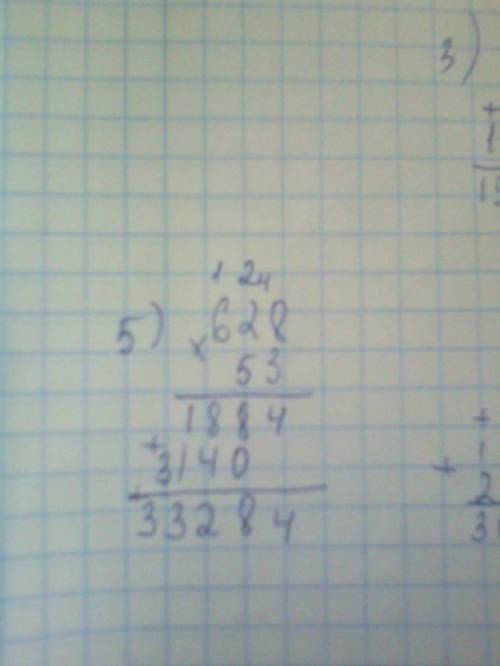 3)
+
1
1 2 4
5) 628
×
53
1884
+
3140
33284
+
+ 1
2
3